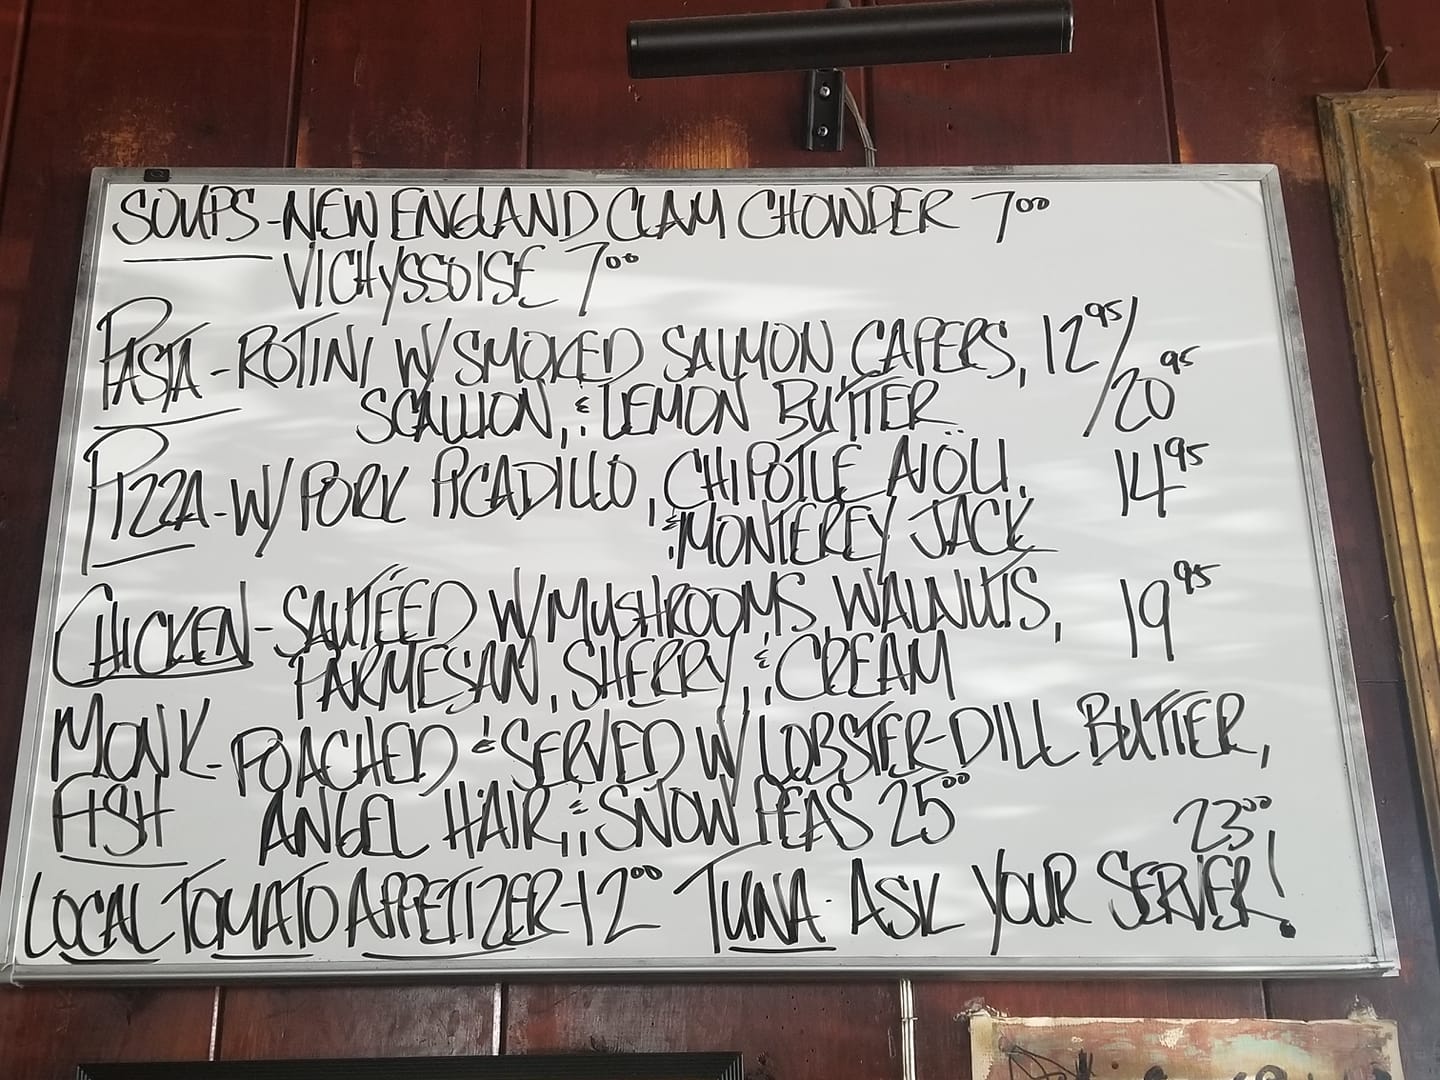 SOUPS - NEW ENGLAND CLAM CHOWDER 7⁰⁰
VICHYSSOISE 7⁰⁰
PASTA - ROTINI W/ SMOKED SALMON CAPERS, 12⁹⁵/
SCALLION, & LEMON BUTTER 20⁹⁵
PIZZA - W/ PORK PICADILLO, CHIPOTLE AÏOLI, 14⁹⁵
& MONTEREY JACK
CHICKEN - SAUTÉED W/ MUSHROOMS, WALNUTS, 19⁹⁵
PARMESAN, SHERRY, & CREAM
MONK - POACHED & SERVED W/ LOBSTER-DILL BUTTER,
FISH ANGEL HAIR, & SNOW PEAS 25⁰⁰ 23⁰⁰
LOCAL TOMATO APPETIZER - 12⁰⁰ TUNA - ASK YOUR SERVER!